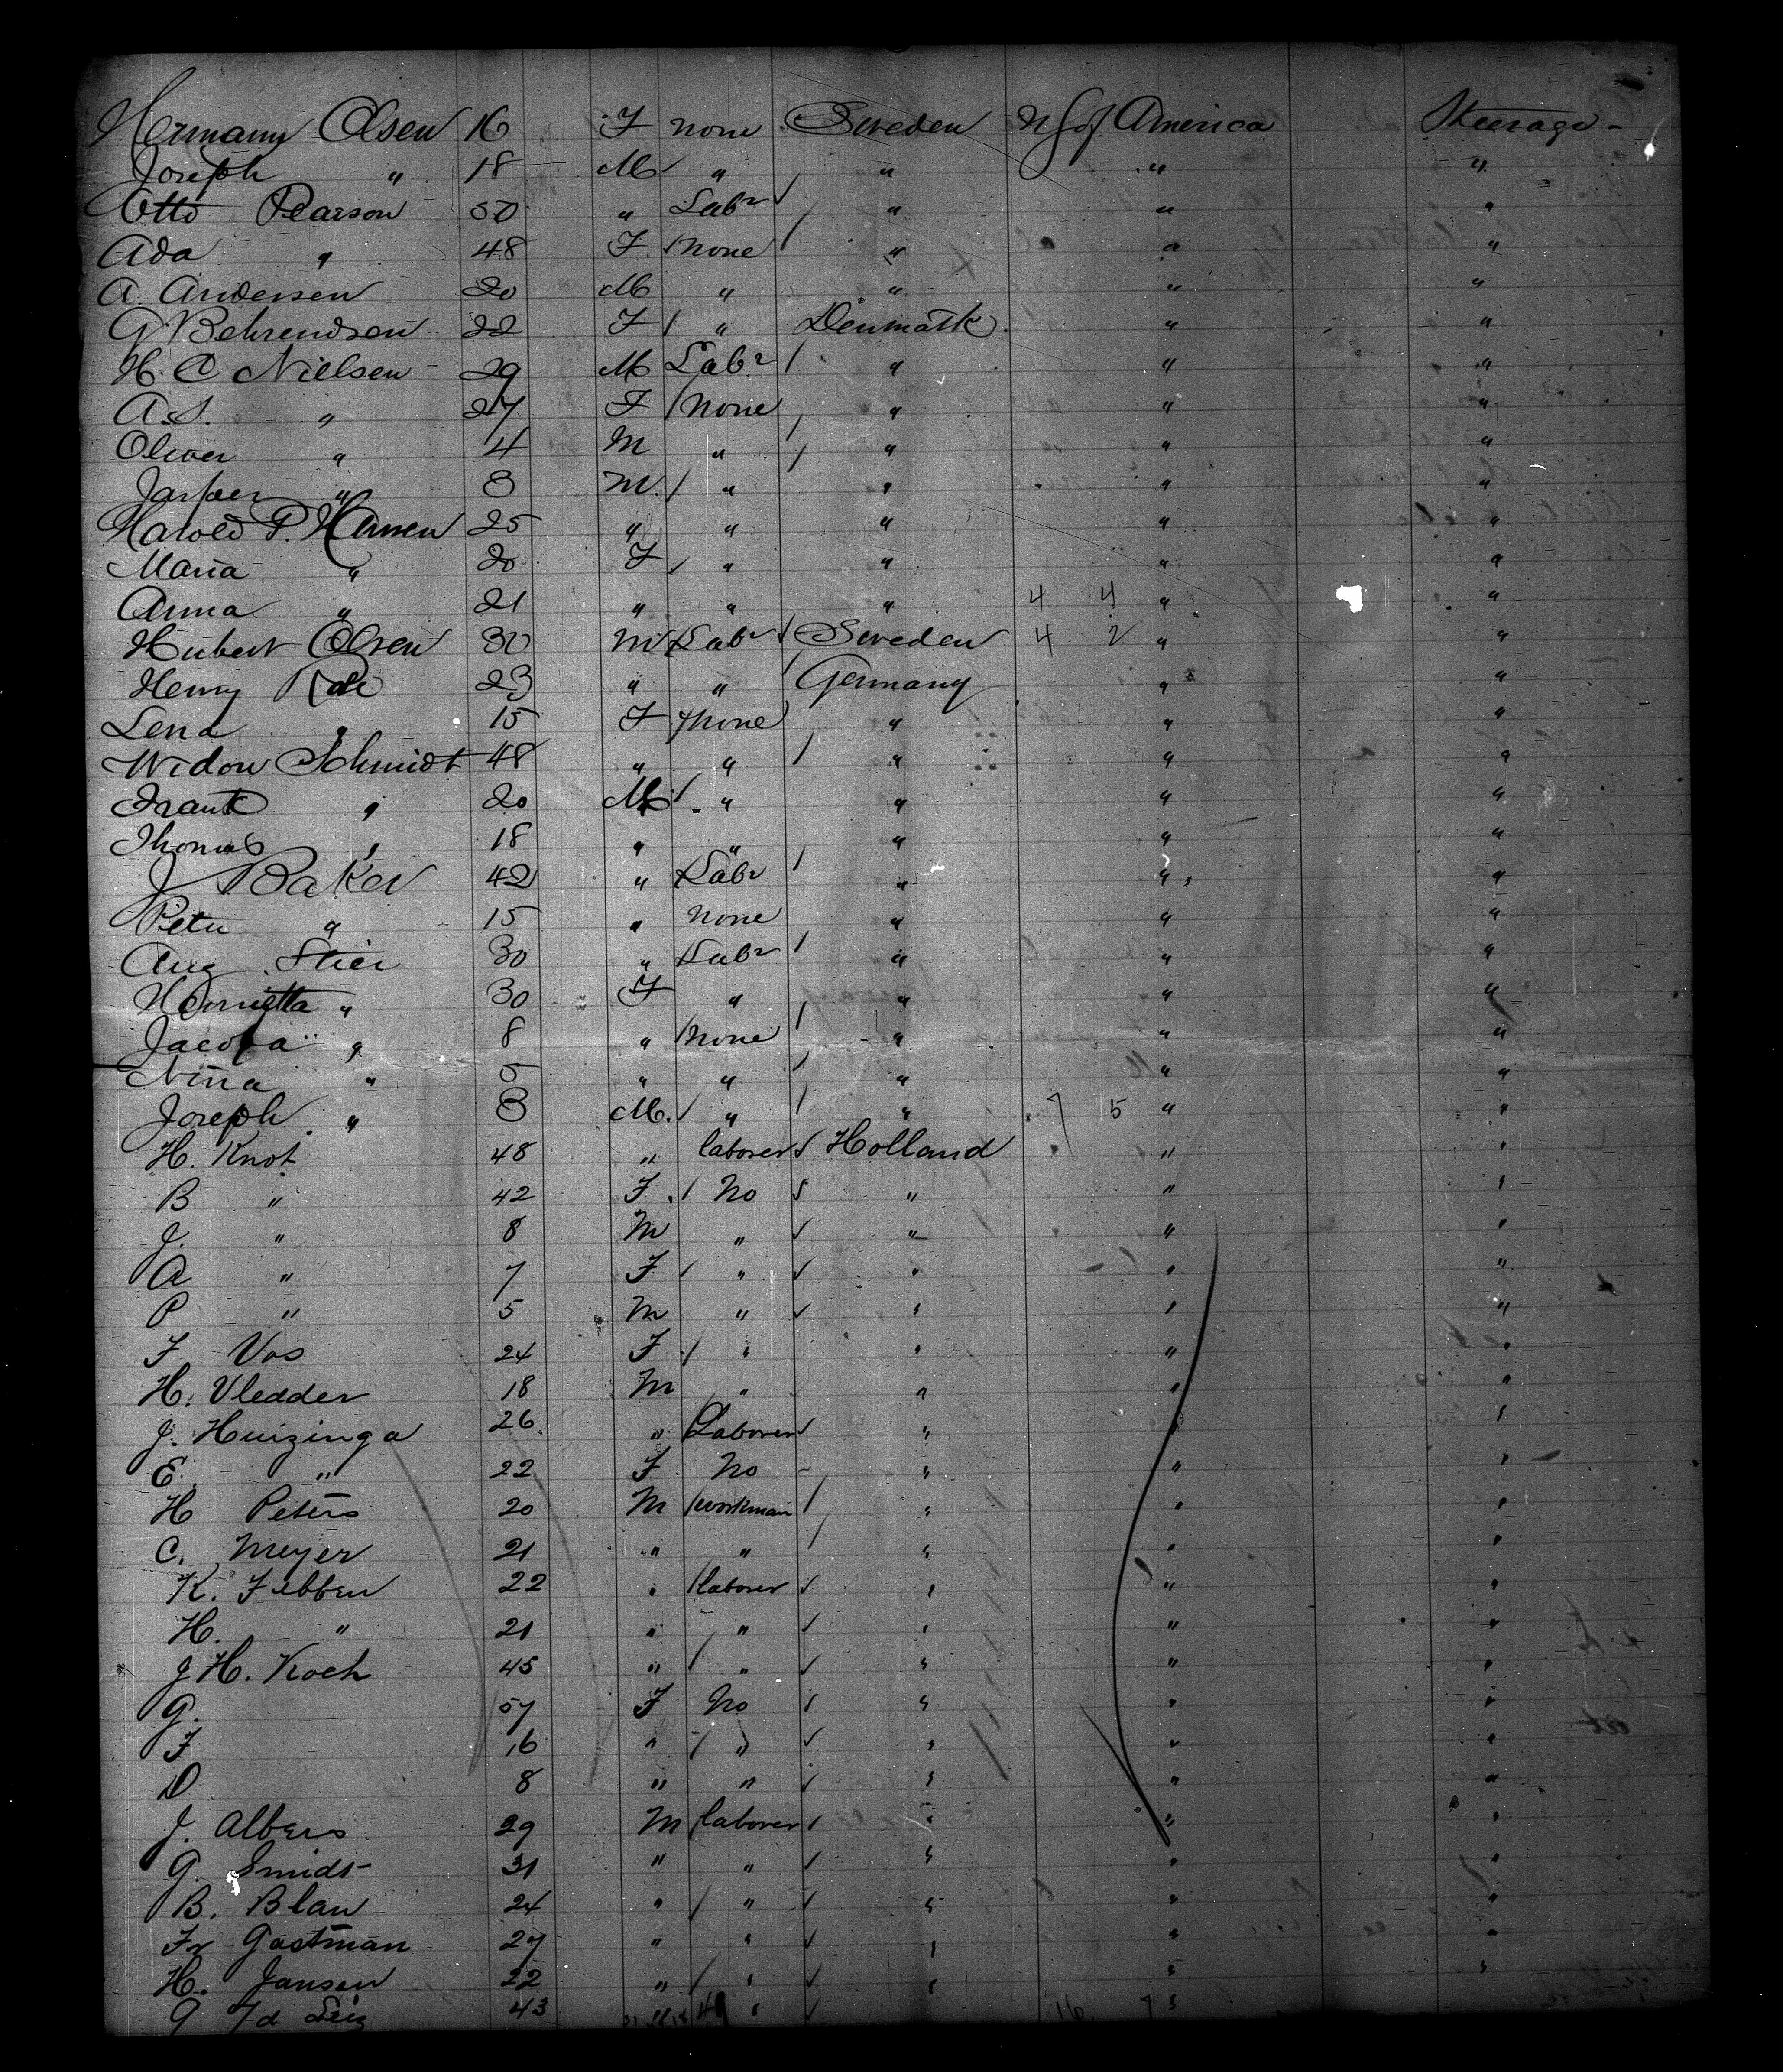 Hermann Olsen 16 F none Sweden U S of America Steerage -
Joseph " 18 M " " " "
Otto Pearson 50 " Labr " " "
Ada " 48 F none " " "
A. Andersen 20 M " " " "
G Behrendsen 22 F " Denmark " "
H. C Nielsen 29 M Labr " " "
A.S. " 27 F None " " "
Oliver " 4 M " " " "
Jasper " 8 M. " " " "
Harold P. Hansen 25 " " " " "
Maria " 20 F " " " "
Anna " 21 " " " 4 4 " "
Hubert Olsen 30 M Labr Sweden 4 2 " "
Henry 23 " " Germany " "
Lena " 15 F None " " "
Widow Schmidt 48 " " " " "
Frank " 20 M " " " "
Thomas " 18 " " " " "
J Baker 42 " Labr " " "
Peter " 15 " none " " "
Aug Stier 30 " Labr " " "
Henrietta " 30 F " " " "
Jacoba " 8 " none " " "
Nina " 5 " " " " "
Joseph " 8 M. " " 7 15 " "
H. Knot 48 " laborer Holland " "
B " 42 F. No " " "
J. " 8 M " " " "
A " 7 F " " " "
P " 5 M " " " "
F Vos 24 F " " " "
H. Vledder 18 M " " " "
J. Huizinga 26 " Laborer " " "
E. " 22 F No " " "
H Peters 20 M workman " " "
C. Meyer 21 " " " " "
K. Febben 22 " laborer " " "
H. " 21 " " " " "
J H. Koch 45 " " " " "
G. 57 F No " " "
F 16 " " " " "
D 8 " " " " "
J. Albers 29 M laborer " " "
G. Smidt 31 " " " " "
B. Blau 24 " " " " "
Fr Gastman 27 " " " " "
H. Jansen 22 " " " " "
G 43 " "